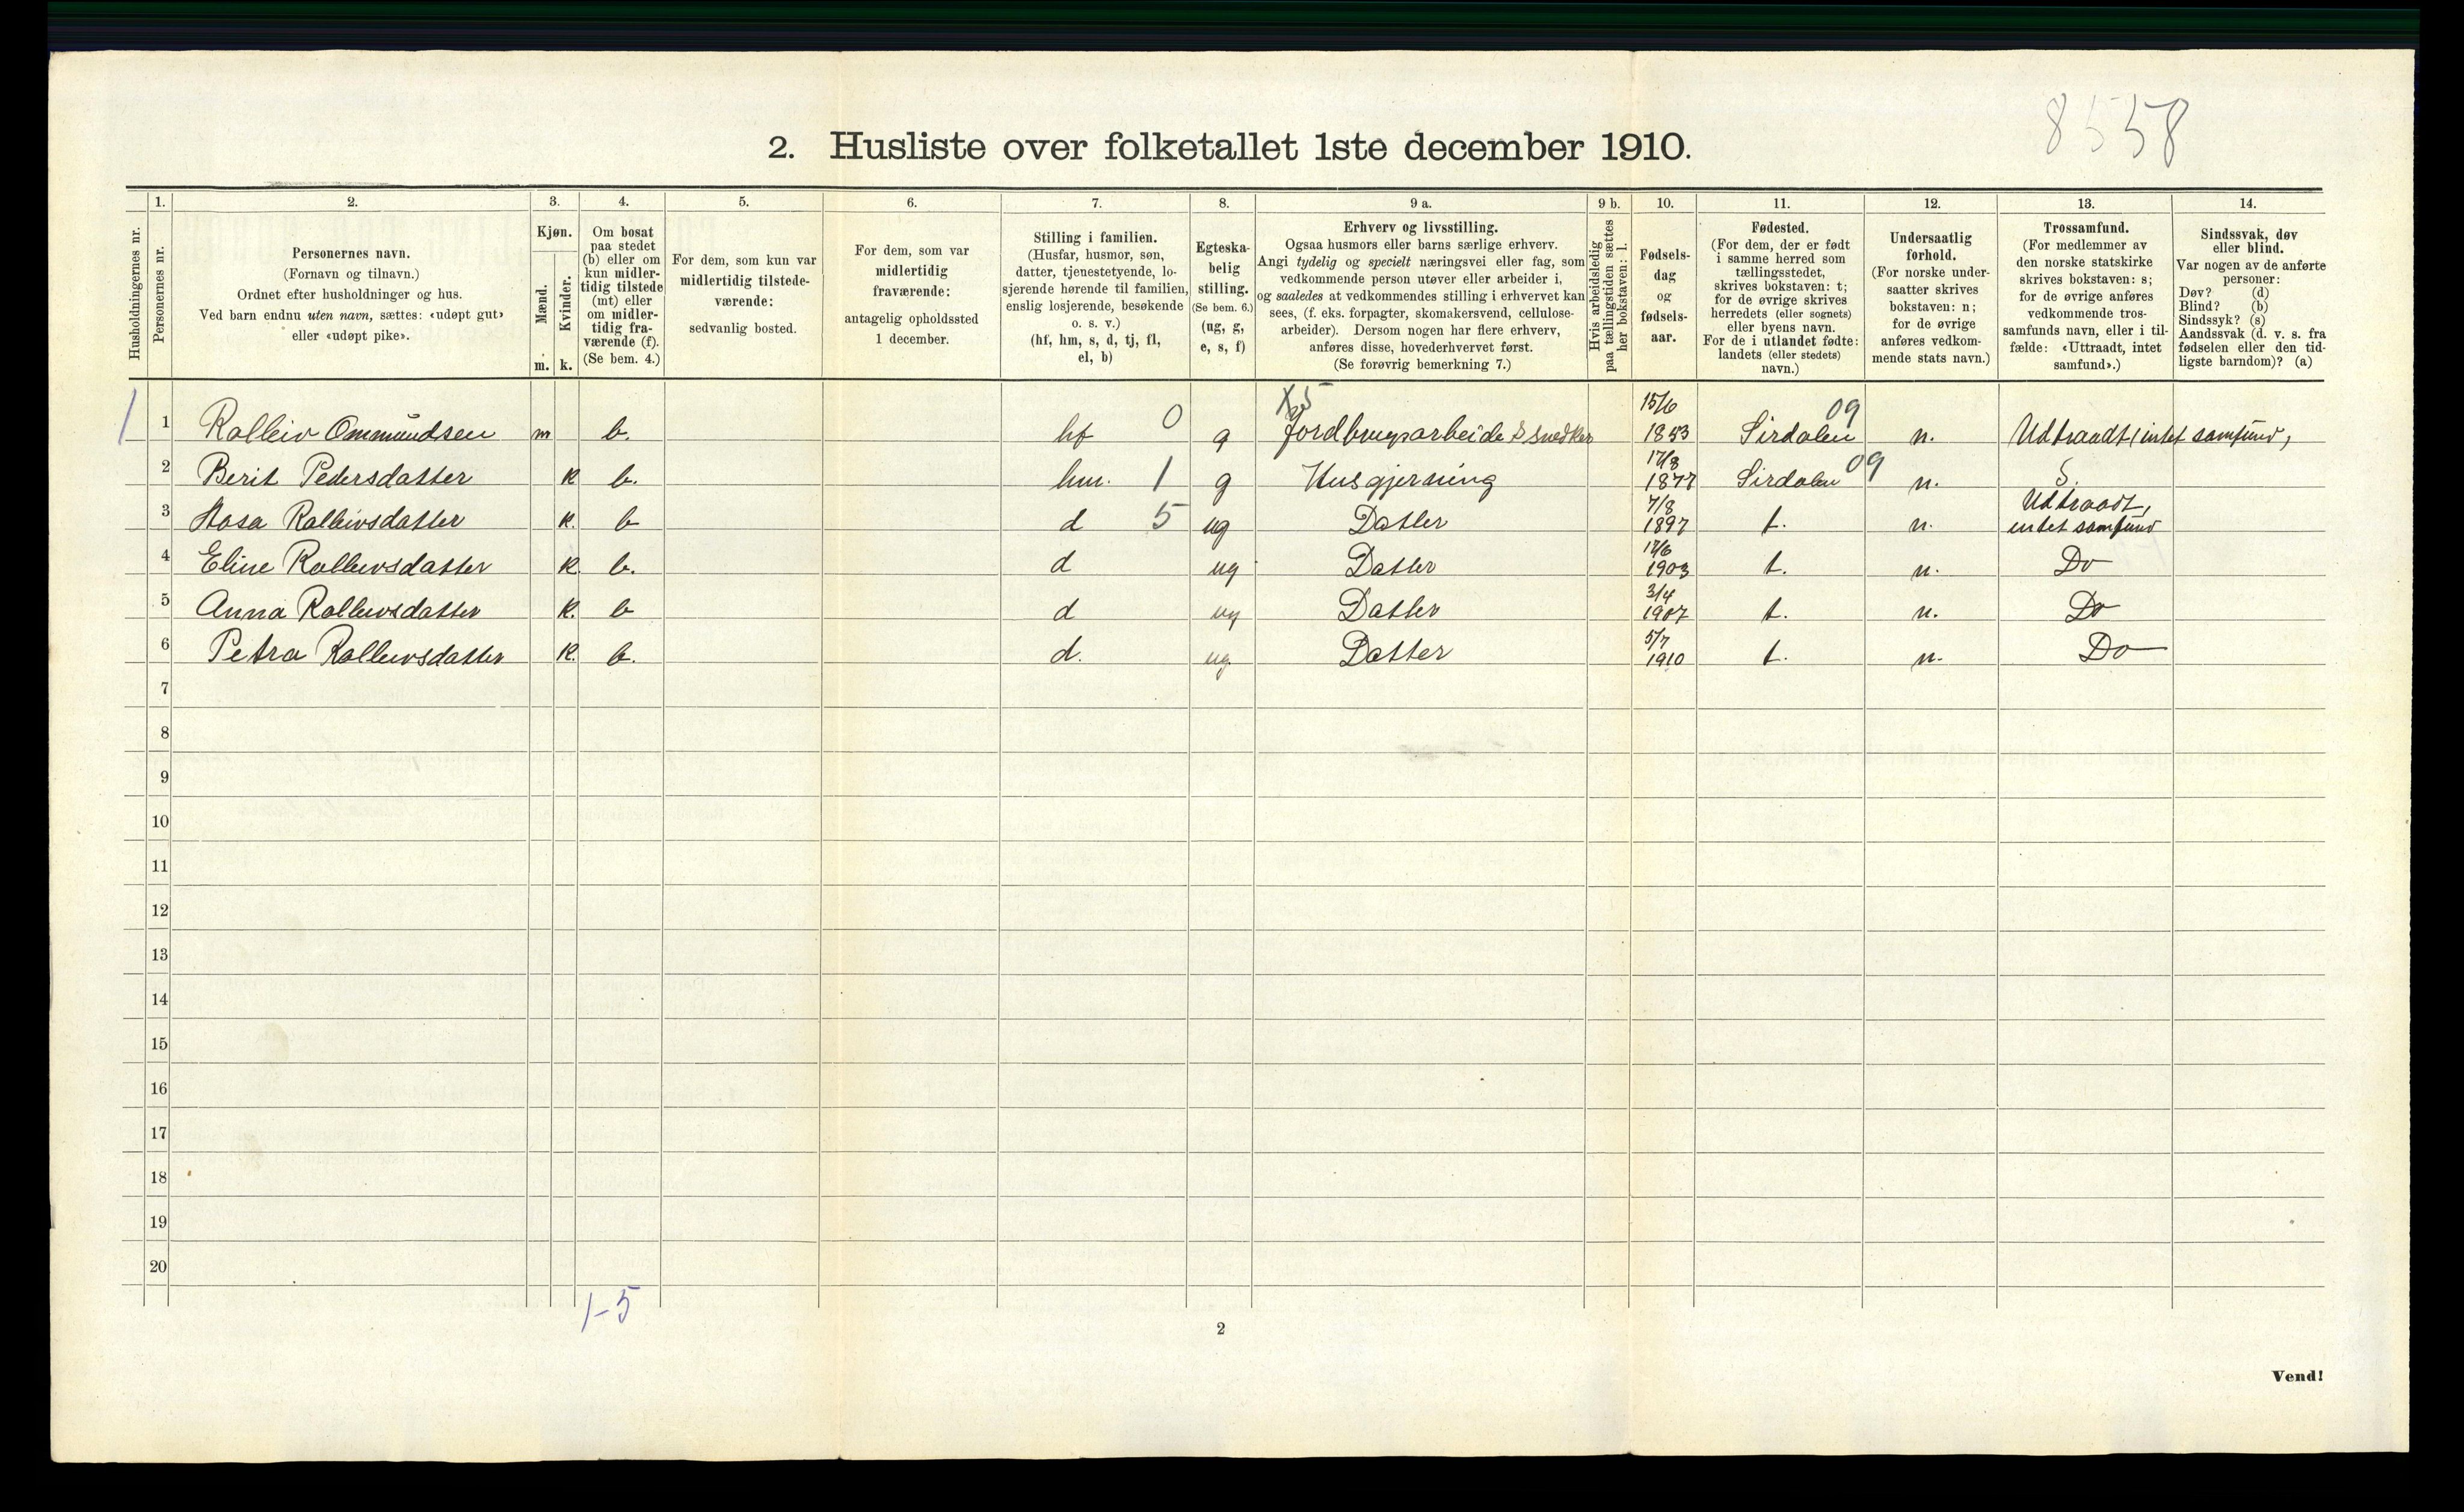 8558
2. Husliste over folketallet 1ste december 1910.
1. 2. 3. 4. 5. 6. 7. 8. 9 a. 9 b. 10. 11. 12. 13. 14.
Husholdningernes nr.
Personernes nr.
Personernes navn.
(Fornavn og tilnavn.)
Ordnet efter husholdninger og hus.
Ved barn endnu uten navn, sættes: «udøpt gut»
eller «udøpt pike».
Kjøn.
Mænd.
Kvinder.
m. k.
Om bosat
paa stedet
(b) eller om
kun midler-
tidig tilstede
(mt) eller
om midler-
tidig fra-
værende (f).
(Se bem. 4.)
For dem, som kun var
midlertidig tilstede-
værende:
sedvanlig bosted.
For dem, som var
midlertidig
fraværende:
antagelig opholdssted
1 december.
Stilling i familien.
(Husfar, husmor, søn,
datter, tjenestetyende, lo-
sjerende hørende til familien,
enslig losjerende, besøkende
o. s. v.)
(hf, hm, s, d, tj, fl,
el, b)
Egteska-
belig
stilling.
(Se bem. 6.)
(ug, g,
e, s, f)
Erhverv og livsstilling.
Ogsaa husmors eller barns særlige erhverv.
Angi tydelig og specielt næringsvei eller fag, som
vedkommende person utøver eller arbeider i,
og saaledes at vedkommendes stilling i erhvervet kan
sees, (f. eks. forpagter, skomakersvend, cellulose-
arbeider). Dersom nogen har flere erhverv,
anføres disse, hovederhvervet først.
(Se forøvrig bemerkning 7.)
Hvis arbeidsledig
paa tællingstiden sættes
her bokstaven: l.
Fødsels-
dag
og
fødsels-
aar.
Fødested.
(For dem, der er født
i samme herred som
tællingsstedet,
skrives bokstaven: t;
for de øvrige skrives
herredets (eller sognets)
eller byens navn.
For de i utlandet fødte:
landets (eller stedets)
navn.)
Undersaatlig
forhold.
(For norske under-
saatter skrives
bokstaven: n;
for de øvrige
anføres vedkom-
mende stats navn.)
Trossamfund.
(For medlemmer av
den norske statskirke
skrives bokstaven: s;
for de øvrige anføres
vedkommende tros-
samfunds navn, eller i til-
fælde: «Uttraadt, intet
samfund».)
Sindssvak, døv
eller blind.
Var nogen av de anførte
personer:
Døv? (d)
Blind? (b)
Sindssyk? (s)
Aandssvak (d. v. s. fra
fødselen eller den tid-
ligste barndom)? (a)
1 1 Rolleiv Ommundsen m b. hf 0 g Jordbrugsarbeide & snedker 15/6 1853 Sirdalen 09 n. Udtraadt, intet samfund,
2 Berit Pedersdatter k b. hm. 1 g Husgjerning 17/8 1877 Sirdalen 09 n. S.
3 Aasa Rolleivsdatter k. b d 5 ug Datter 7/8 1897 t. n. Udtraadt, intet samfund
4 Eline Rolleivsdatter k. b. d ug Datter 17/6 1903 t. n. Do
5 Anna Rolleivsdatter k. b d ug Datter 3/4 1907 t. n. Do
6 Petra Rolleivsdatter k. b. d. ug. Datter 5/7 1910 t. n. Do
7
8
9
10
11
12
13
14
15
16
17
18
19
20
1-5
2
Vend!